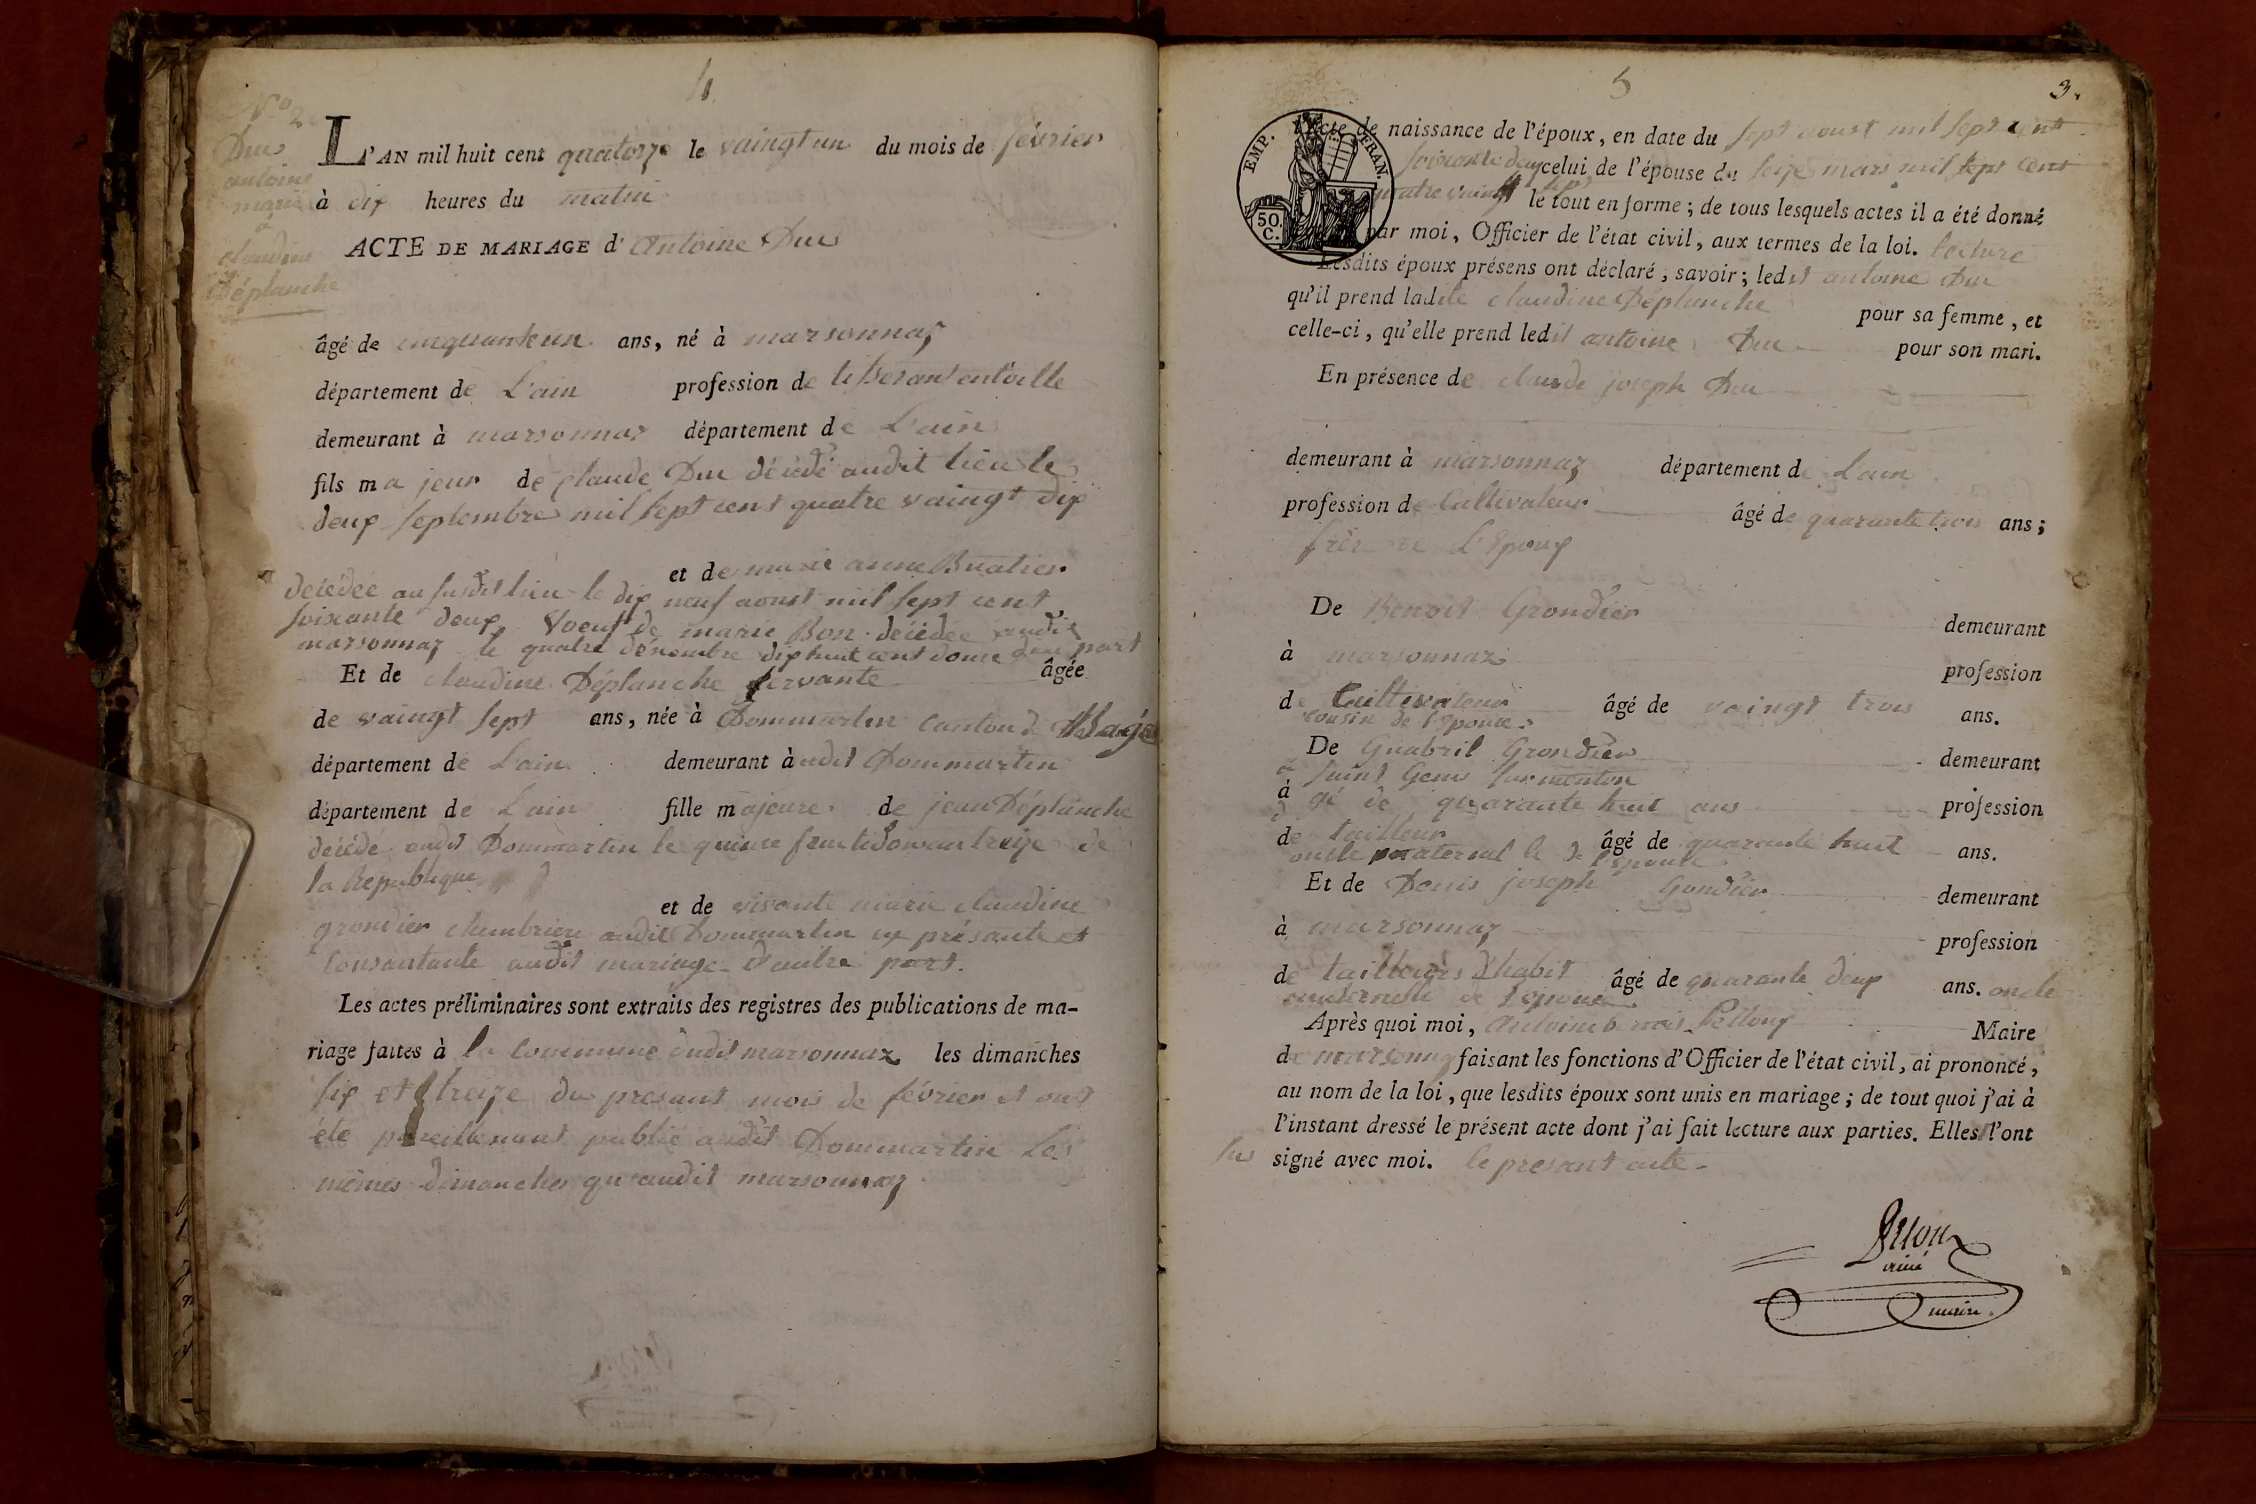 4
N° 2
Duc
antoine
marié
à
claudine
Déplanche
L'AN mil huit cent quatorze le vaingt un du mois de février
à dix heures du matin
ACTE DE MARIAGE d'Antoine Duc
âgé de cinquante un ans, né à marsonnaz
département de L'ain profession de tisseran en toille
demeurant à marsonnaz département de L'ain
fils majeur de claude Duc décédé audit lieu le
deux septembre mil sept cent quatre vaingt dix
et de marie anne Buatier
décédée au susdit lieu le dix neuf aoust mil sept cent
soixante deux Voeuf de marie Bon décédée audit
marsonnaz le quatre dénombre dix huit cent douze d'une part
Et de claudine Déplanche servante âgée
de vaingt sept ans, née à Dommartin canton de Bagé
département de L'ain demeurant audit Dommartin
département de L'ain fille majeure de jean Déplanche
décédé audit Dommartin le quinze fructidor an treize de
la République
et de vivante marie claudine
grondier chambriere audit Dommartin ici présante et
consantante audit mariage d'autre part.
Les actes préliminaires sont extraits des registres des publications de ma-
riage faites à la commune dudit marsonnaz les dimanches
six et treize du presant mois de février et ont
été pareillemant publié audit Dommartin les
mêmes dimanches qu'audit marsonnaz
5
3.
EMP. FRAN.
50 C.
L'acte de naissance de l'époux, en date du sept aoust mil sept cent
soixante deux celui de l'épouse du seize mars mil sept cent
quatre vaingt sept le tout en forme; de tous lesquels actes il a été donné
par moi, Officier de l'état civil, aux termes de la loi. lecture
Lesdits époux présens ont déclaré, savoir; ledit antoine Duc
qu'il prend ladite claudine Déplanche pour sa femme, et
celle-ci, qu'elle prend ledit antoine Duc pour son mari.
En présence de claude joseph Duc
demeurant à marsonnaz département de L'ain
profession de Cultivateur âgé de quarante trois ans;
frère de L'Epoux
De Benoit Grondier demeurant
à marsonnaz profession
de Cultivateur âgé de vaingt trois ans.
cousin de l'Epouse
De Guabril Grondier demeurant
à saint Genis sur menton
agé de quarante huit ans profession
de tailleur âgé de quarante huit ans.
oncle maternel de l'Epouse
Et de Denis joseph Gondier demeurant
à marsonnaz profession
de tailleurs d'habit âgé de quarante deux ans. oncle
maternelle de l'epouse
Après quoi moi, Antoine Pelloux Maire
de marsonnaz faisant les fonctions d'Officier de l'état civil, ai prononcé,
au nom de la loi, que lesdits époux sont unis en mariage; de tout quoi j'ai à
l'instant dressé le présent acte dont j'ai fait lecture aux parties. Elles l'ont
signé avec moi. le presant acte
Pelloux
ainé
maire.